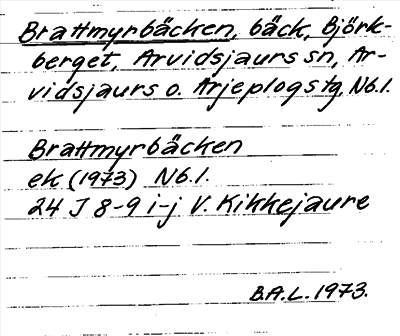 Brattmyrbäcken, bäck, Björk-
berget, Arvidsjaurs sn, Ar-
vidsjaurs o. Arjeplogs tg, Nb.l.
Brattmyrbäcken
ek (1973) Nb.l.
24 J 8-9 i-j V. Kikkejaure
B.A.L. 1973.